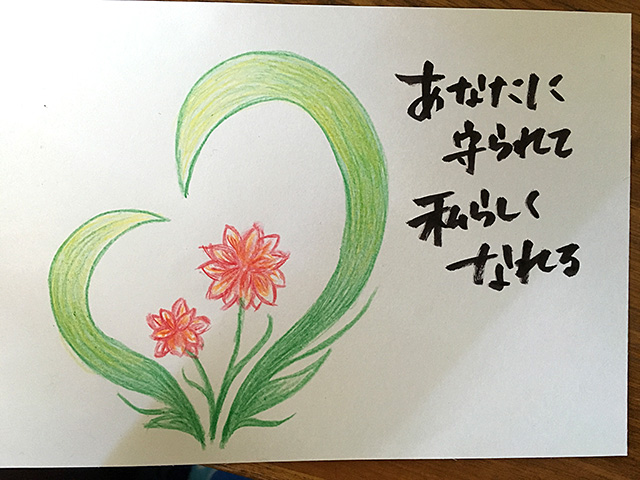 あなたに
守られて
私らしく
なれる